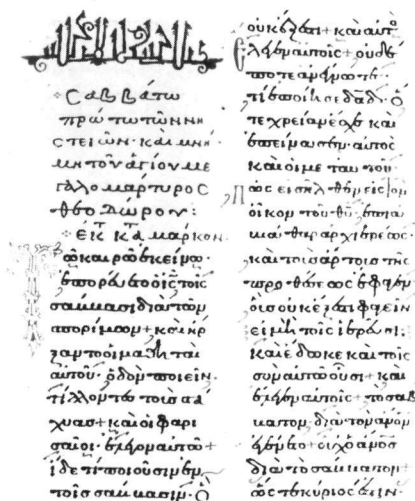 Σαββάτω
πρώτω τῶν νη
στειῶν· καὶ μνή
μη τοῦ ἁγίου με
γαλομάρτυρος
θεοδώρου:
ἐκ τ κατ μάρκον
Τῶ καιρῶ ἐκείνω·
ἐπορεύετο ὁ ι̅ς̅ τοῖς
σάββασι διὰ τῶν
σπορίμων+ καὶ ἤρ
ξαντο οἱ μαθηταὶ
αὐτοῦ· ὁδὸν ποιεῖν·
τίλλοντες τοὺς στά
χυας+ καὶ οἱ φαρι
σαῖοι· ἔλεγον αὐτῶ+
ἴδε τί ποιοῦσιν ἐν
τοῖς σάββασιν· ὃ
οὐκ ἔξεστι+ καὶ αὐτὸς
ἔλεγεν αὐτοῖς+ οὐδέ
ποτε ἀνέγνωτε·
τί ἐποίησε δ̅α̅δ̅· ὅ
τε χρείαν ἔσχε καὶ
ἐπείνασεν· αὐτὸς
καὶ οἱ μετ αὐτοῦ·
πῶς εἰσῆλθεν εἰς τὸν
οἶκον τοῦ θ̅υ̅ ἐπὶ ἀ
βιάθαρ ἀρχιερέως·
καὶ τοὺς ἄρτους τῆς
προθέσεως ἔφαγεν·
οὓς οὐκ ἔξεστι φαγεῖν
εἰ μὴ τοῖς ἱερεῦσι·
καὶ ἔδωκε καὶ τοῖς
σὺν αὐτῶ οὖσι+ καὶ
ἔλεγεν αὐτοῖς+ τὸ σάβ
βατον, διὰ τὸν α̅ν̅ο̅ν̅
ἐγένετο+ οὐχ ὁ α̅ν̅ο̅ς̅
διὰ τὸ σάββατον+
ὥστε κύριός ἐστιν